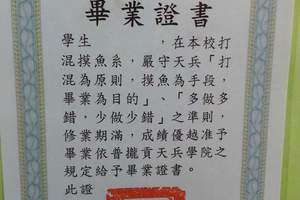 畢業證書
學生　　　，在本校打
混摸魚系，嚴守天兵「打
混為原則，摸魚為手段，
畢業為目的」、「多做多
錯，少做少錯」之準則，
修業期滿，成績優越准予
畢業依普攏貢天兵學院之
規定給予畢業證書。
此證